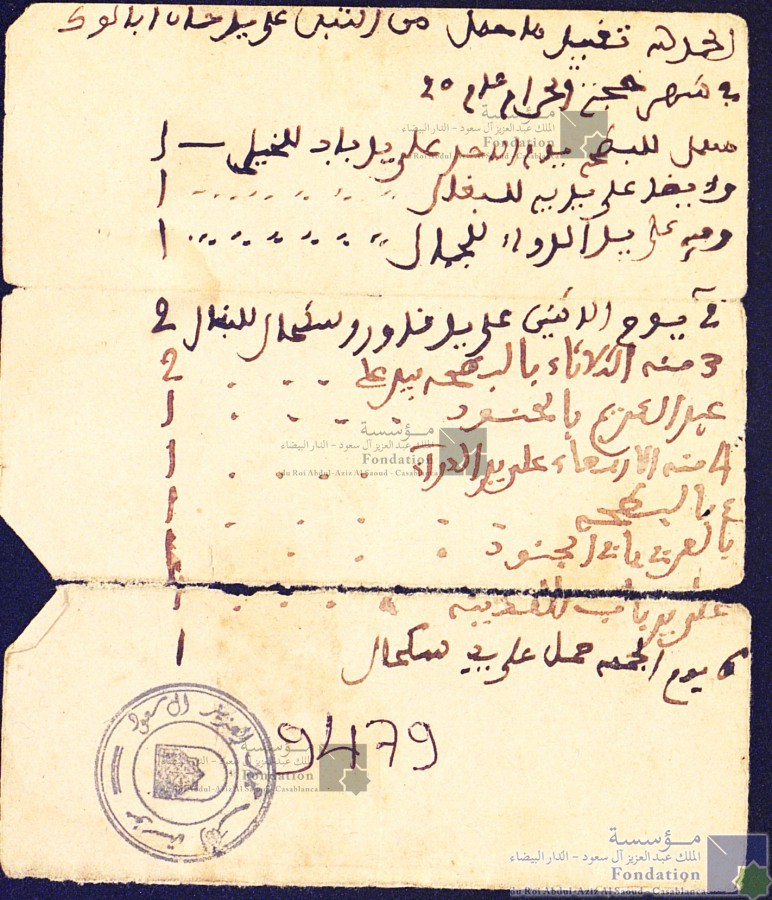 الحمد لله تقييد ما حمل من التبن على يد
في شهر حجة الحرام عام ٢٥
حمل للبطحه يوم الاحد على يد باب للخيل — 1
وايضا على يديه للبغال 1
ومنه على يد الدراء للجمال 1
2 يوم الاثنين على يد قدور وسكحال للبغال 2
3 منه الثلاثاء بالبطحه بيد علي 2
عبد العزيز بالجنود 1
4 منه الاربعاء على يد الدراء 1
بالبطحه 1
الجنود
على يد باب 1
6 يوم الجمعه حمل على يد سكحال 1
9479
مؤسسة
الملك عبد العزيز آل سعود – الدار البيضاء
Fondation
du Roi Abdul-Aziz Al Saoud – Casablanca